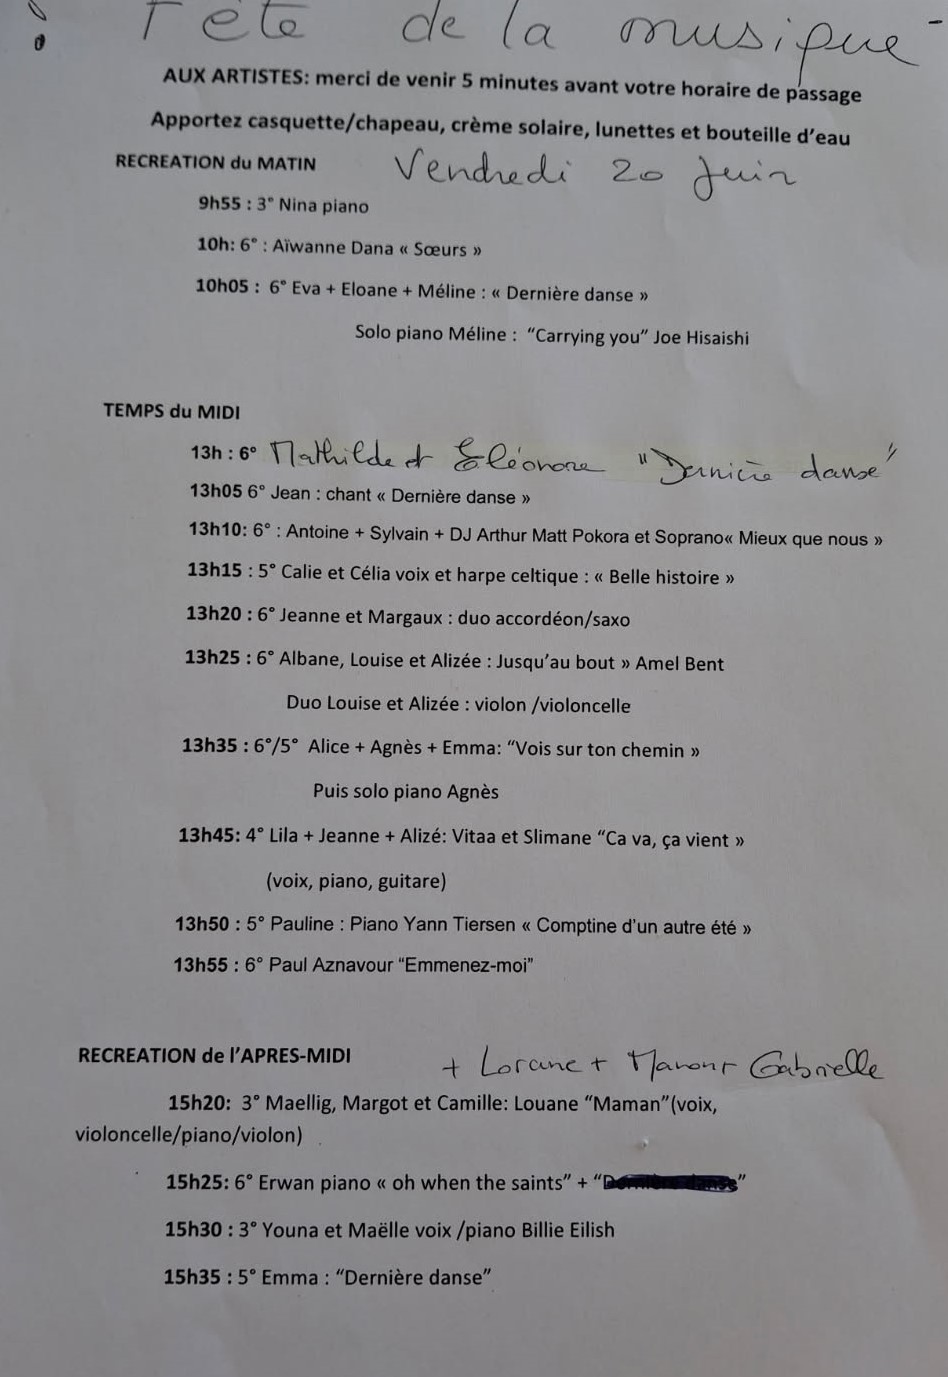 Fête de la musique
AUX ARTISTES: merci de venir 5 minutes avant votre horaire de passage
Apportez casquette/chapeau, crème solaire, lunettes et bouteille d'eau
RECREATION du MATIN Vendredi 20 Juin
9h55 : 3° Nina piano
10h: 6° : Aïwanne Dana « Sœurs »
10h05 : 6° Eva + Eloane + Méline : « Dernière danse »
Solo piano Méline : "Carrying you" Joe Hisaishi
TEMPS du MIDI
13h : 6° Mathilde et Eléonore "Dernière danse"
13h05 6° Jean : chant « Dernière danse »
13h10: 6° : Antoine + Sylvain + DJ Arthur Matt Pokora et Soprano« Mieux que nous »
13h15 : 5° Calie et Célia voix et harpe celtique : « Belle histoire »
13h20 : 6° Jeanne et Margaux : duo accordéon/saxo
13h25 : 6° Albane, Louise et Alizée : Jusqu'au bout » Amel Bent
Duo Louise et Alizée : violon /violoncelle
13h35 : 6°/5° Alice + Agnès + Emma: "Vois sur ton chemin »
Puis solo piano Agnès
13h45: 4° Lila + Jeanne + Alizé: Vitaa et Slimane "Ca va, ça vient »
(voix, piano, guitare)
13h50 : 5° Pauline : Piano Yann Tiersen « Comptine d'un autre été »
13h55 : 6° Paul Aznavour "Emmenez-moi"
RECREATION de l'APRES-MIDI + Lorane + Manon + Gabrielle
15h20: 3° Maellig, Margot et Camille: Louane "Maman"(voix,
violoncelle/piano/violon)
15h25: 6° Erwan piano « oh when the saints" + "Dernière danse"
15h30 : 3° Youna et Maëlle voix /piano Billie Eilish
15h35 : 5° Emma : "Dernière danse"